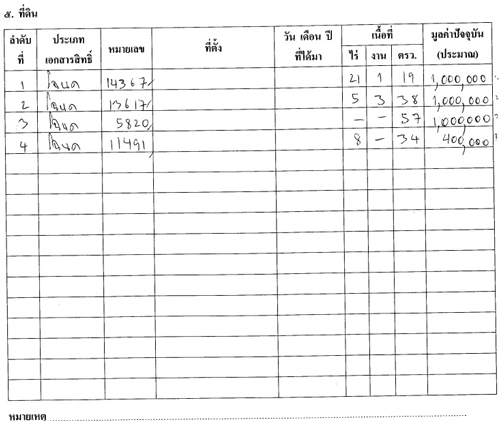 ๕. ที่ดิน
ลำดับที่ ประเภทเอกสารสิทธิ์ หมายเลข ที่ตั้ง วัน เดือน ปี ที่ได้มา เนื้อที่ ไร่ งาน ตรว. มูลค่าปัจจุบัน (ประมาณ)
1 โฉนด 14367 21 1 19 1,000,000
2 โฉนด 13617 5 3 38 1,000,000
3 โฉนด 5820 - - 57 1,000,000
4 โฉนด 11491 8 - 34 400,000
หมายเหตุ